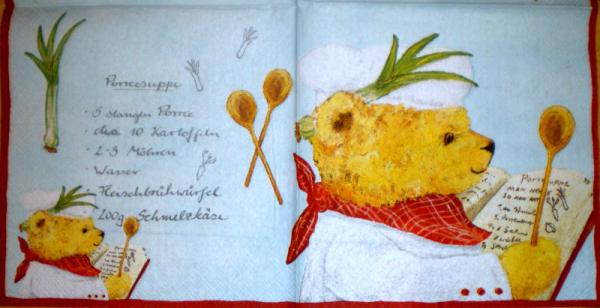 Porreesuppe
- 5 Stangen Porree
- circa 10 Kartoffeln
- 2-3 Möhren
- Wasser
- Fleischbrühwürfel
- 200g Schmelzkäse
Porreesuppe
man